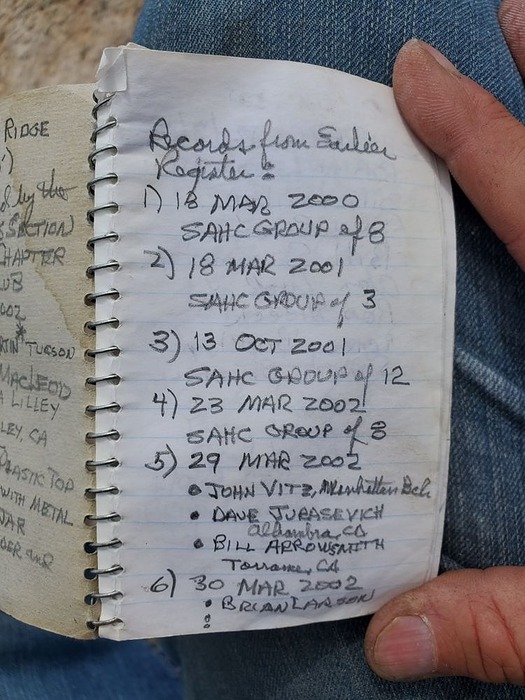 RIDGE
')
by the
SECTION)
CHAPTER
UB
002
TUCSON
MACLEOD
A LILLEY
LEY, CA
PLASTIC TOP
WITH METAL
JAR
Records from Earlier
Register:
1) 18 MAR 2000
SAHC GROUP of 8
2) 18 MAR 2001
SAHC GROUP of 3
3) 13 OCT 2001
SAHC GROUP of 12
4) 23 MAR 2002
SAHC GROUP of 8
5) 29 MAR 2002
• JOHN VITZ, Manhattan Bch
• DAVE JURASEVICH
Alhambra, CA
• BILL ARROWSMITH
Torrance, CA
6) 30 MAR 2002
• BRIAN LARSON